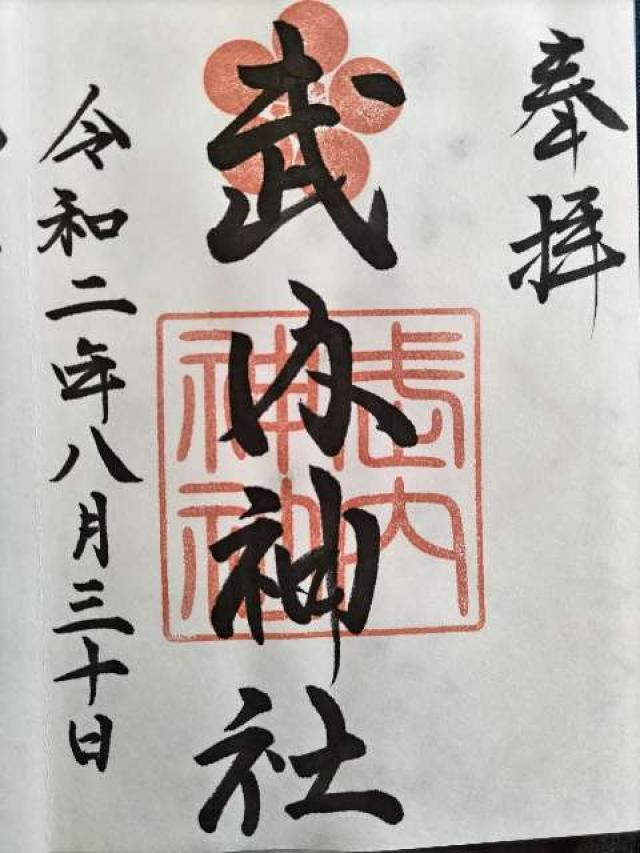 奉拝
武内神社
武内
神社
令和二年八月三十日